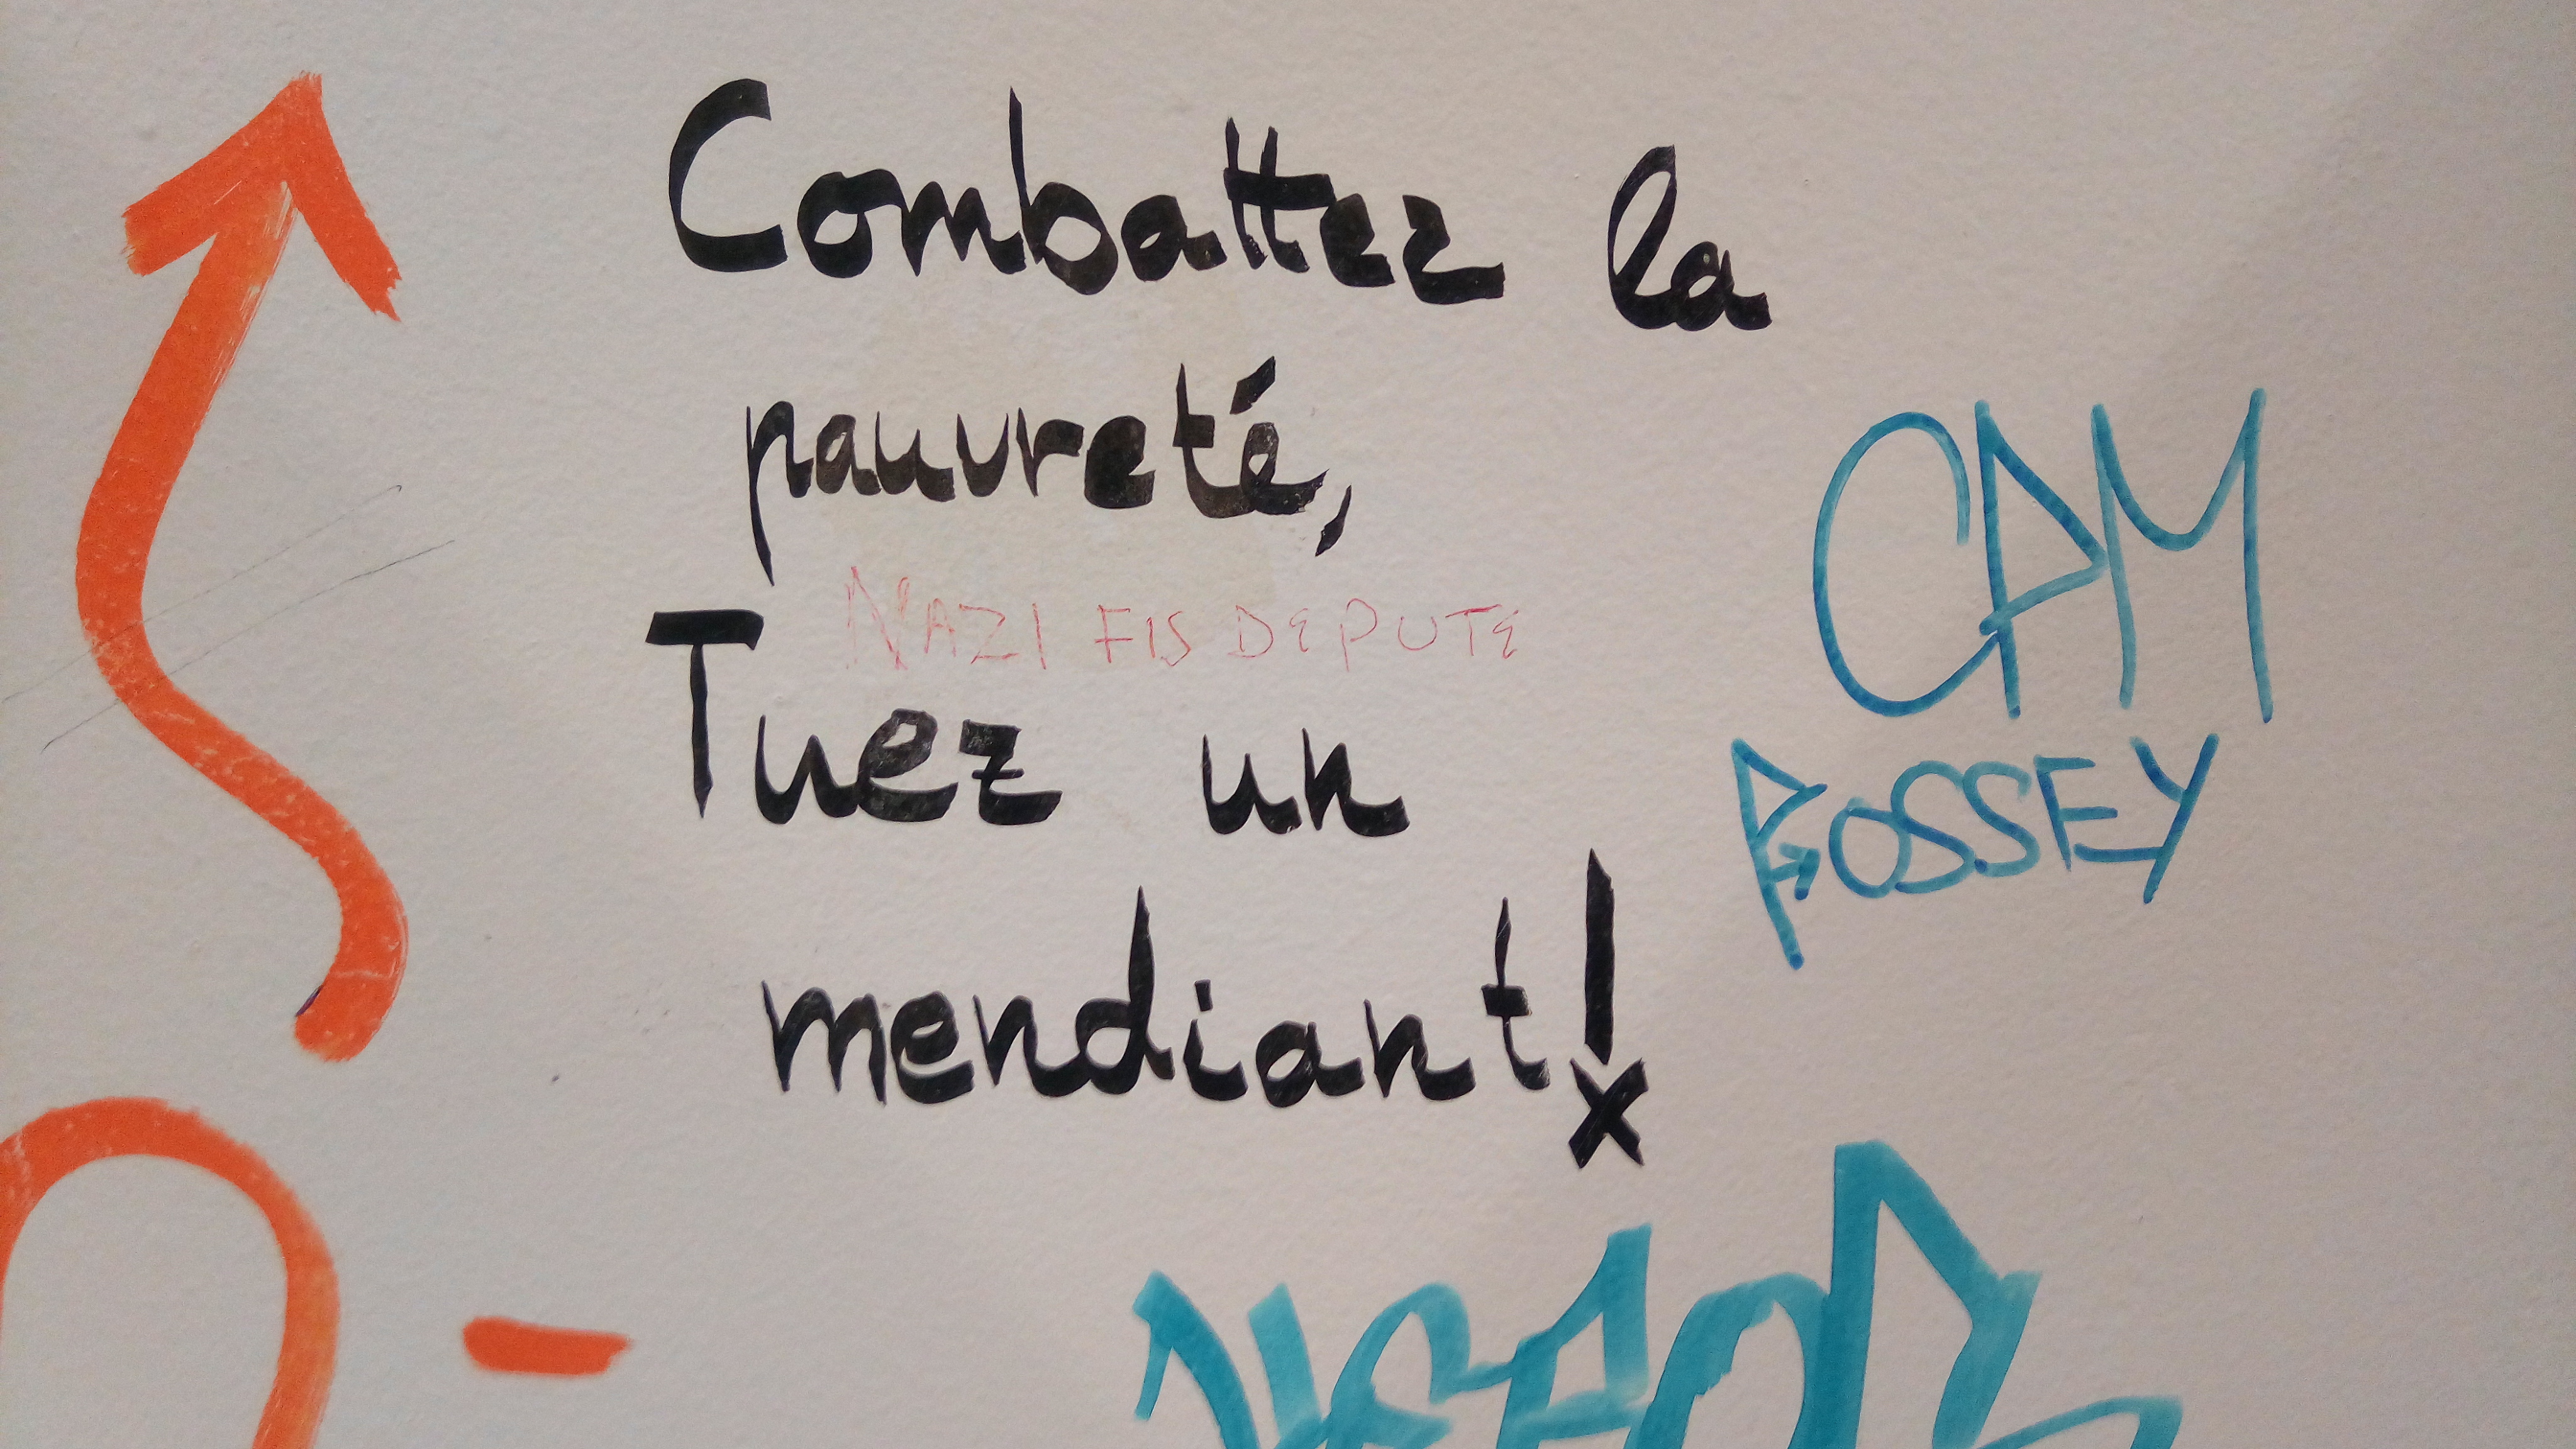 Combattez la
pauvreté,
NAZI FIS DE PUTE
Tuez un
mendiant!
CAM
ROSSEY